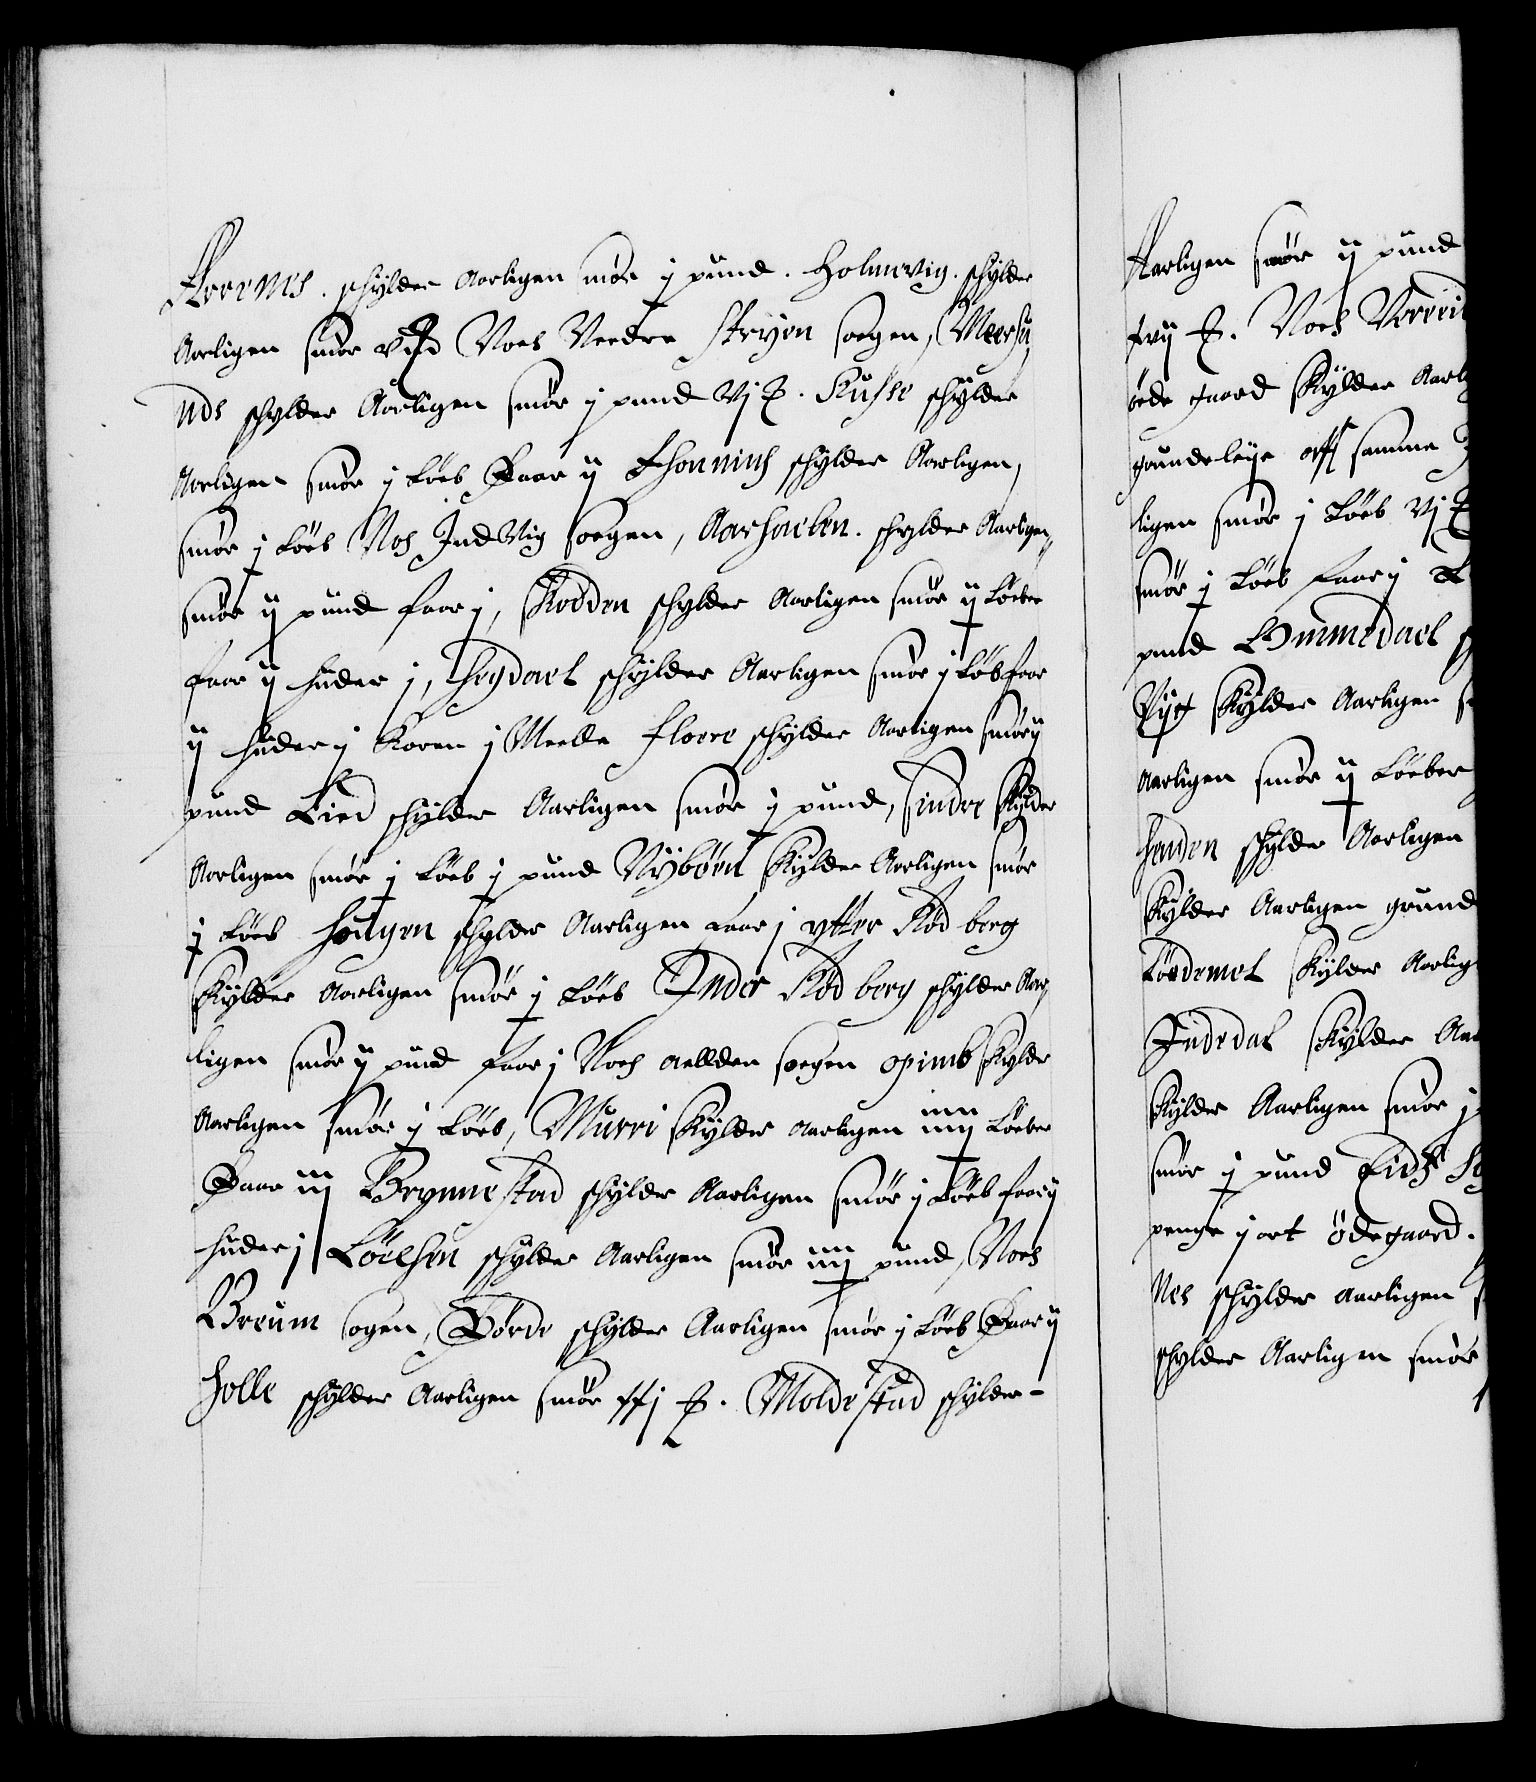 Arernes. schylder Aarligen smør ij pund. Holmevig. schylder
Aarligen smør Voes Nerdre Stryen sogen, Meersu
nds schylder Aarligen smør j pund vj ℔. Kusse schylder
Aarligen smør j Löeb Faar ij Thonnius schylder Aarligen,
smør j Löeb Nos Ind Vig sogen, Aarhaeben. schylder Aarligen
smør ij pund faar j, Skodden schylder Aarligen smør ij Löeber
faar ij huder j, Hegdael schylder Aarligen smør j Löb faar
ij huder j Koren j Meelle Floere schylder Aarligen smør ij
pund Lied schylder Aarligen smør ij pund, Sindre Skylder
Aarligen smør j Löeb j pund Nybörn Skylder Aarligen smør
j Löeb Höilyen schylder Aarligen Faar j ytter Rödberg
Skylder Aarligen smør j Löeb Inder Rödberg schylder Aar
ligen smør ij pund faar j Noes aellden sogen opimb Skylder
Aarligen smør j Löeb, Murri Skylder Aarligen iiij Löeber
Faar iij Brynnestad schylder Aarligen smør j Löeb faar ij
huder j Löechen schylder Aarligen smør iiij pund, Noes
Breum sogen, Förde schylder Aarligen smør j Löeb Faar ij
Holle schylder Aarligen smør ℔. Moldestad schylder-
Aarligen smør ij pund
℔. Noes Vereid
øde gaard Skylder Aarl
grundeleye aff samme
ligen smør j Löeb vj ℔
smør j Löeb faar j
pund Ommedael
Ryg Skylder Aarligen
Aarligen smør ij Löeber
handen schylder Aarligen
Skylder Aarligen grund
Löedemel Skylder Aarlig
Indedal Skylder Aa
Skylder Aarligen smør j
smør ij pund Eids
penge j ort ödegaard.
Nes schylder aarligen
schylder Aarligen smør